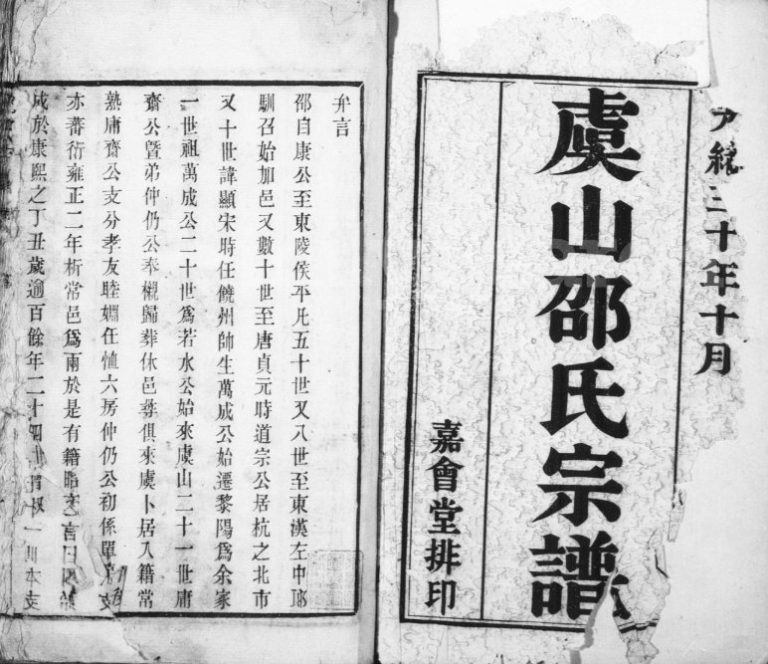 統三十年十月
虞山邵氏宗譜
嘉會堂排印
弁言
邵自康公至東陵侯平凡五十世又八世至東漢左中郎
馴召始加邑又數十世至唐貞元時道宗公居杭之北市
又十世諱顯宋時任饒州帥生萬成公始遷黎陽爲余家
一世祖萬成公二十世爲若水公始來虞山二十一世庸
齋公曁弟仲仍公奉櫬歸葬休邑彝俱來虞卜居入籍常
熟庸齋公支分孝友睦婣任恤六房仲仍公初係單支
亦蕃衍雍正二年析常邑爲兩於是有籍昭文者
成於康熙之丁丑歲逾百餘年二十